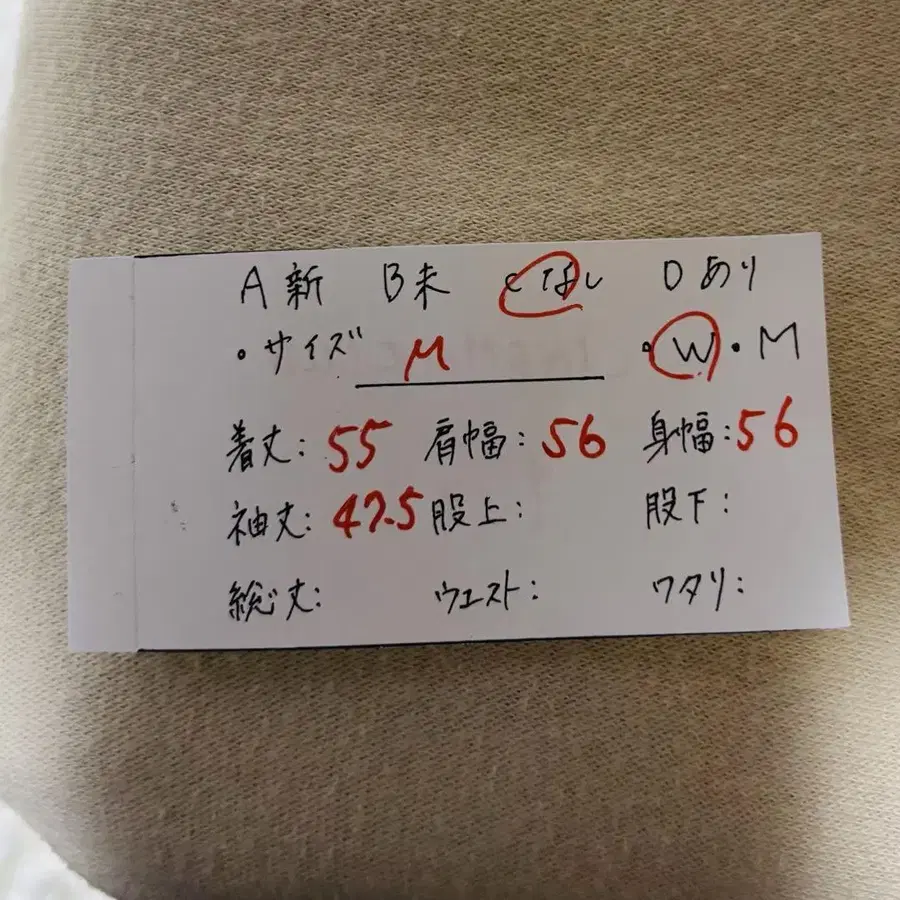 A新 B未 Cなし Dあり
・サイズ M ・W・M
着丈:55 肩幅:56 身幅:56
袖丈:47.5 股上: 股下:
総丈: ウエスト: ワタリ: